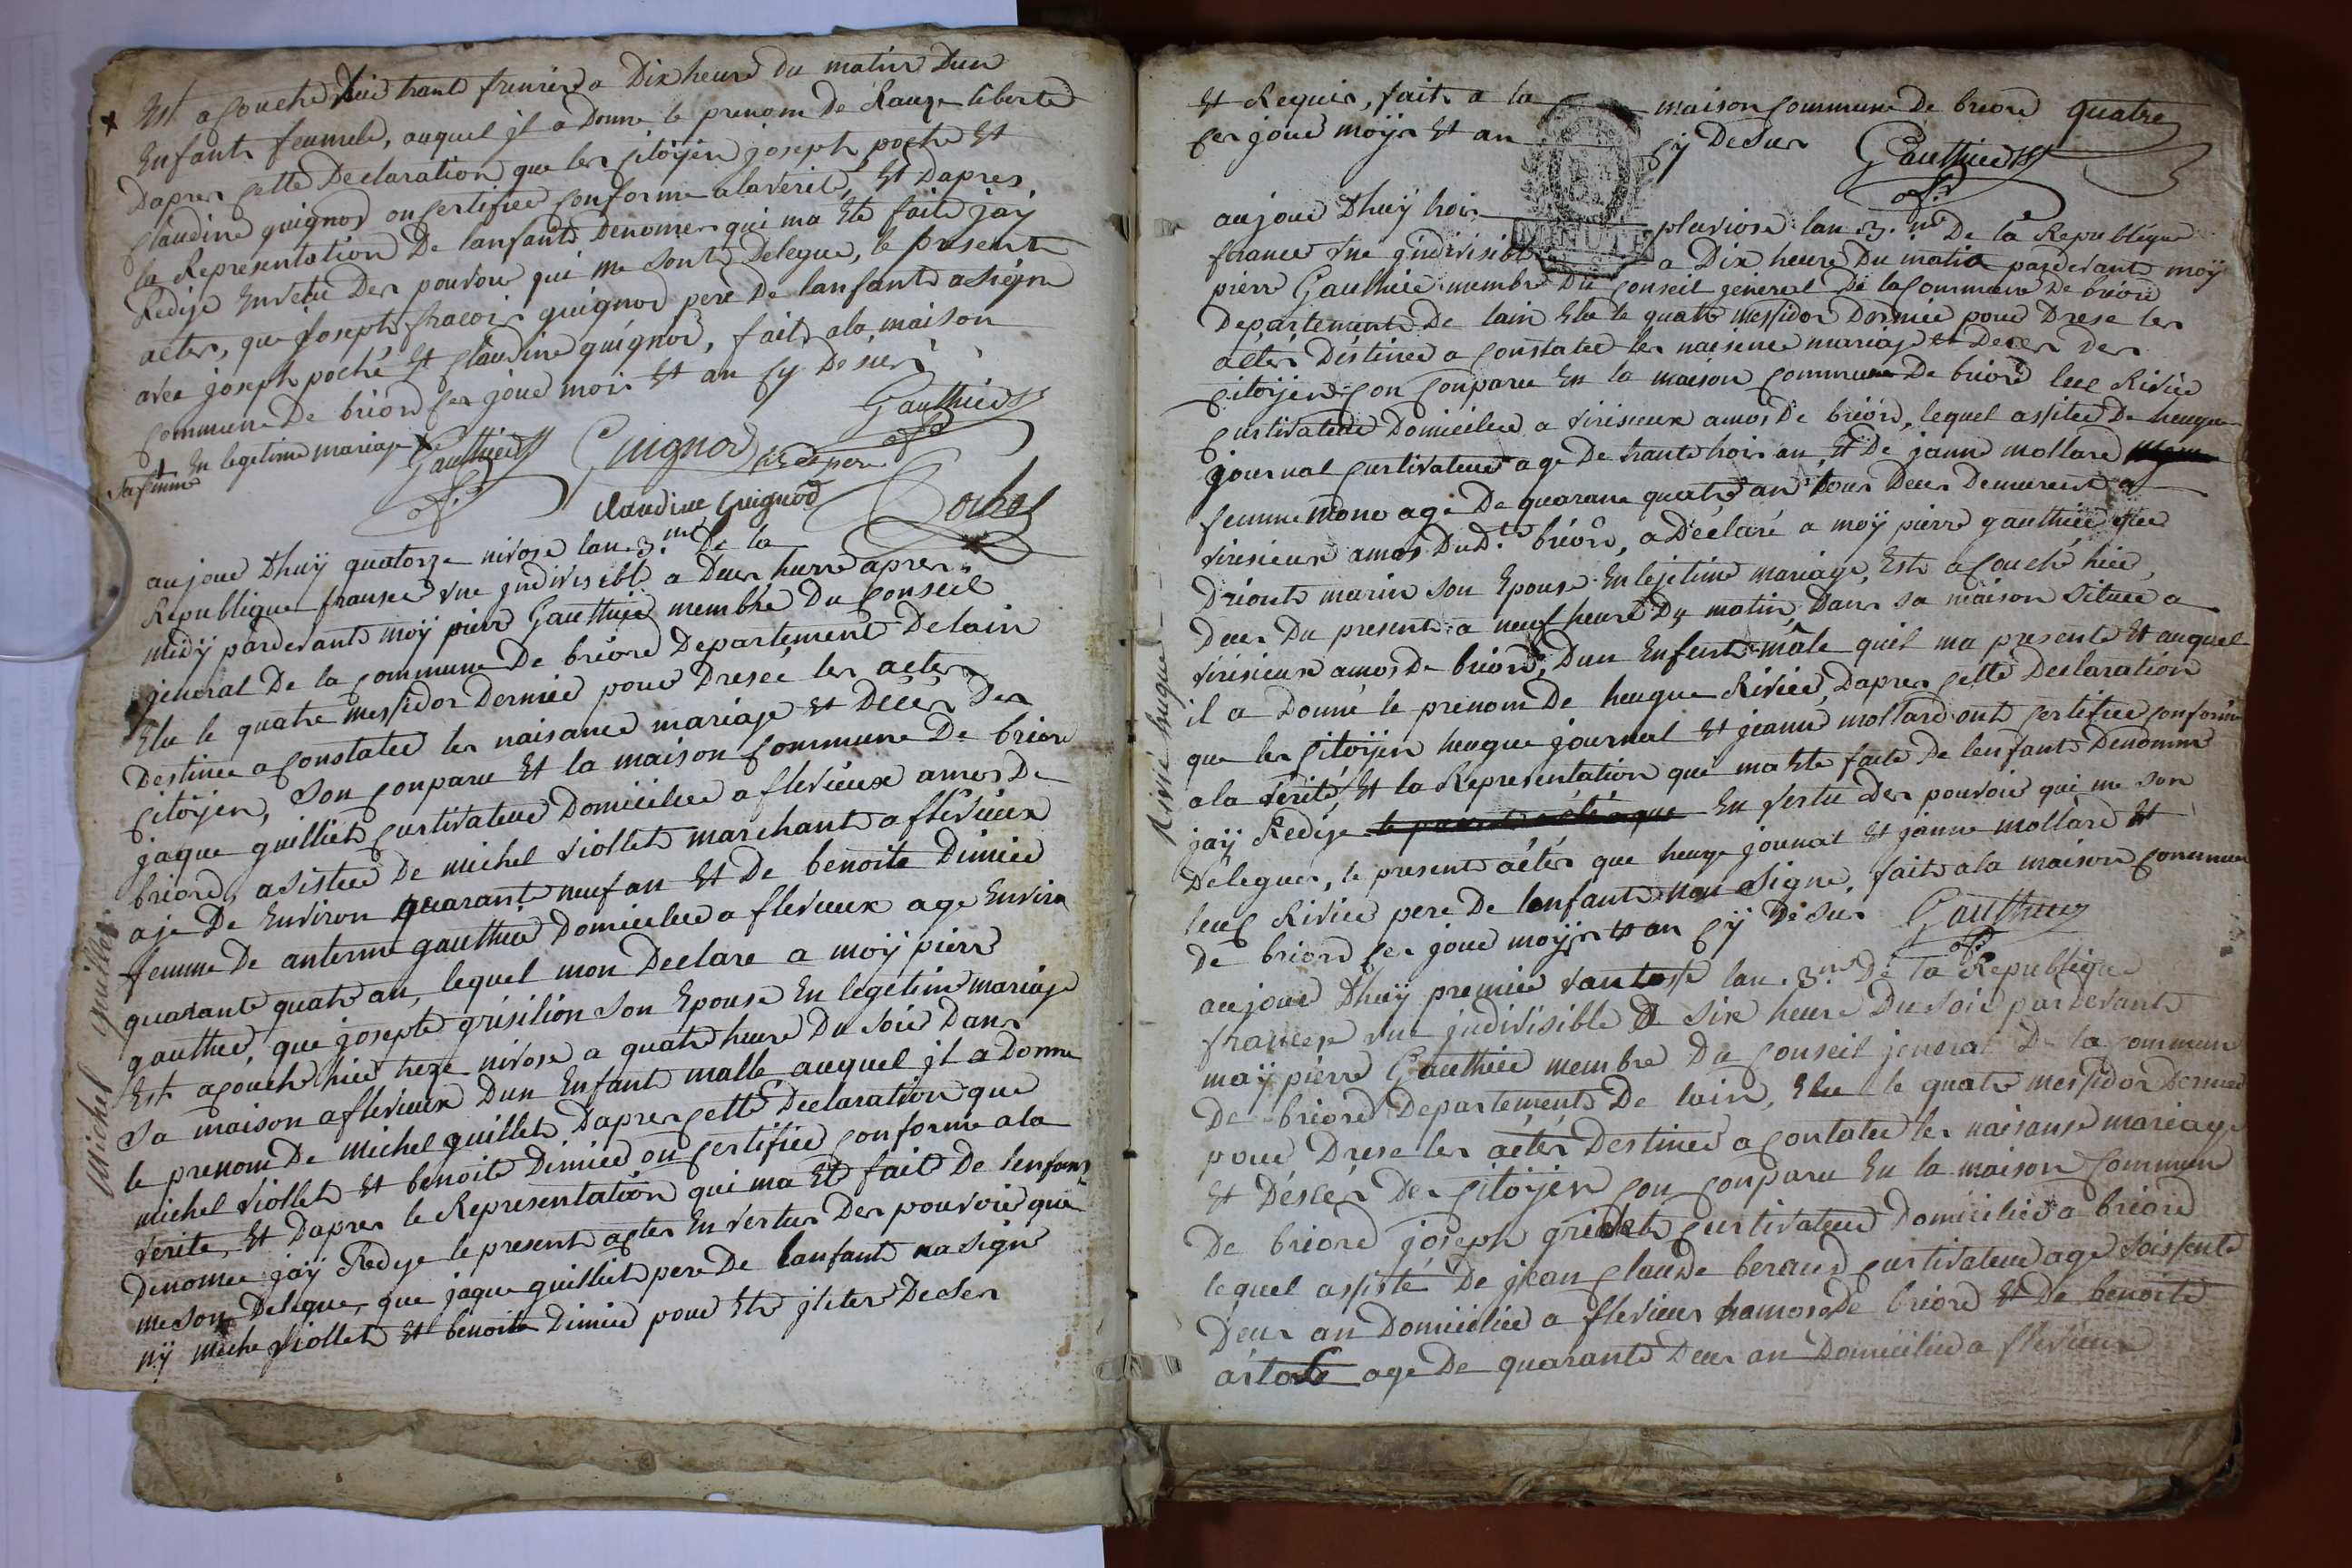 Est acouché hier trante frimere a Dix heure du matin Dun
Enfant feumele, auquel jl a Donne le prenom De Rauze liberte
Dapres cette Declaration que les citoÿen joseph poche Et
claudine guignod on certifiee conforme alaverité, Et Dapres
la Representation De lanfant Denomer qui ma Ete faite jaÿ
Redije Envertu Des pouvoir qui me sont Delegue, le present
actes, que joseph fracois guignod pere De lanfant a signe
avec joseph poché Et claudine guignod, fait ala maison
commune De briord ces jour mois Et an cy Desus
+ En legetime mariage
sa famme
Gauthier
Guignod
Gauthier
claudine Guignod
Pochet
aujour Dhuÿ quatorze nivose lan 3.me De la
Republique franse vne jndivisible a Deus heure apres
midÿ pardevant moÿ pierr Gauthier membre Du conseil
jeneral De la commune De briord Departement Delain
Elu le quatre messidor Dernier pour Dresée les actes
Destinee a constatee les naisance mariage et Décés Des
citoÿen, son conparu Et la maison commune De briord
jaque guilliet curtivateur Domicilie a flevieux amos De
briord, asistee De michel viollet marchant a flevieux
aje De Environ quarant neuf an Et De benoite Dimier
femme De antenne gauthier Domiciliee a flevieux age Enviro
quarante quatre an, lequel mon Declare a moÿ pierr
gauthier, que josepte grisilion son Epouse En legetime mariaje
Est acouché hier treze nivose a quatre heure Du soir Dans
sa maison a flevieux Dun Enfant malle auquel jl a Donne
le prenom De michel guillet Dapres cette Declaration que
michel viollet Et benoite Dimier on certifiee conforme ala
verite, Et Dapres le Representation qui ma Ete fait De lenfant
Denomee jaÿ Redije le present actes En vertus Des pouvoir qui
me son Delegue, que jaque guilliet pere De lanfant na signe
nÿ miche viollet Et benoite Dimier pour Etre jliteré Decler
Michel guillet
Et Requis, fait a la maison commune De briord quatre
ces jour moÿs Et an cÿ Desus Gauthier
aujour Dhuÿ trois pluviose lan 3.me De la Republique
france vne jndivisible a Dix heure Du matin pardevant moÿ
MINUTE
pierr Gauthier membre Du conseil general De la commune De briord
Departement De lain Elu le quatre messidor Dernier pour Drese les
actes Destinee a constatee les naisence mariage et Deces Des
citoÿen con conparu En la maison commune De briord luc Rivier
curtivateur Domicilee a virisieux amos De briord, lequel assitee De heugue
journal curtivateur age De trante trois an Et De janne mollard
femme mone age De quarane quatre an tous Deus Demurent a
virisieux amos Dud.t briord, a Declaré a moÿ pierr gauthier que
Drionte marin son Epouse En lejetime mariage, Est acouché hier
Deus Du present a neuf heure Du matin, Dans sa maison située a
virisieux amos De briord, Dun Enfent mâle quil ma presente Et auquel
il a Donné le prenom De heugue Rivier, Dapres cette Declaration
que les citoÿen heugue journal Et jeanne mollard ont certifiee conforme
ala vérité, Et la Representation que ma Ete faite De lenfant Denomme
jaÿ Redije En vertu Des pouvoir qui me son
Deleguer, le present actes que heuge journal Et janne mollard Et
luc Rivier pere De lenfant non signe, fait ala maison commune
De briord ces jour moÿs Et an cÿ Desus Gauthier
Rivié hugue
aujour Dhuÿ premier vantosse lan 3.me De la Republique
francese vne jndivisible a six heure Du soir pardevant
moÿ pierre Gauthier membre Du conseil jeneral De la commun
De briord Departement De lain, Elu le quatre messidor Dernier
pour Drese les actes Destinee a contatee les naisanse mariage
Et Deséés Des citoÿen con conparu En la maison commun
De briord joseph curtivateur Domicilier a briord
lequel assisté De jean claude beraud curtivateur age soissente
Deus an Domicilier a flevieux hamos De briord Et De benoite
age De quarante Deus an Domicilier a flevieux